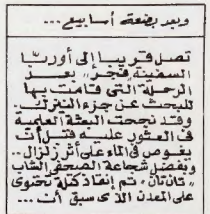 وبعد بضعة أسابيع...
تصل قريبا إلى أوربا
السفينة "فجر" بعد
الرحلة التي قامت بها
للبحث عن جزء النيزك.
وقد نجحت البعثة العلمية
في العثور عليه قبل أن
يغوص في الماء على أثر زلزال..
وبفضل شجاعة الصحفي الشاب
"تان تان"، تم إنقاذ كتلة تحتوى
على المعدن الذى سبق أن...